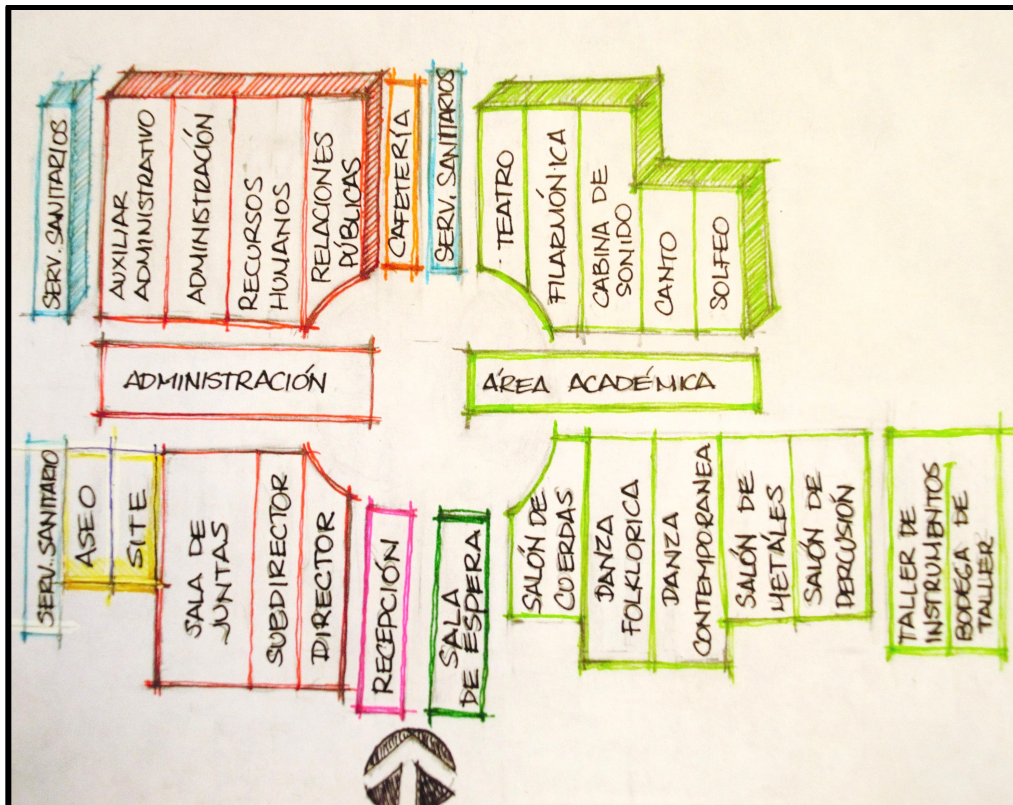 SERV. SANITARIOS
AUXILIAR
ADMINISTRATIVO
ADMINISTRACIÓN
RECURSOS
HUMANOS
RELACIONES
PÚBLICAS
CAFETERÍA
SERV. SANITARIOS
TEATRO
FILARMÓNICA
CABINA DE
SONIDO
CANTO
SOLFEO
ADMINISTRACIÓN
ÁREA ACADÉMICA
SERV. SANITARIO
ASEO
SITE
SALA DE
JUNTAS
SUBDIRECTOR
DIRECTOR
RECEPCIÓN
SALA
DE ESPERA
SALÓN DE
CUERDAS
DANZA
FOLKLORICA
DANZA
CONTEMPORANEA
SALÓN DE
METÁLES
SALÓN DE
PERCUSIÓN
TALLER DE
INSTRUMENTOS
BODEGA DE
TALLER.